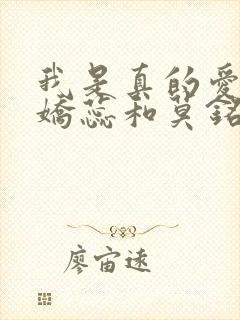 我是真的愛
嬌蕊和莫銘
廖宙遠